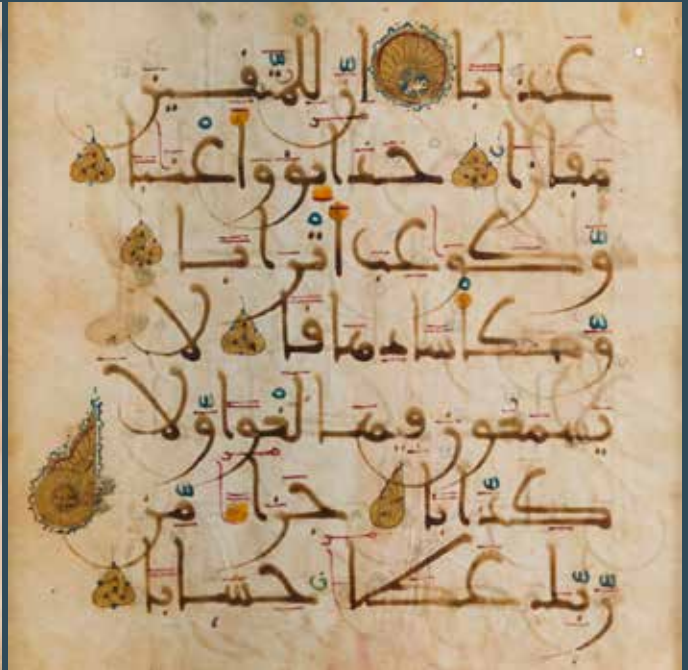 عذابا ان للمتقين
مفازا حدايق واعنبا
وكواعب اترابا
وكاسا دهاقا لا
يسمعون فيها لغوا ولا
كذابا جزا من
ربك عطا حسابا